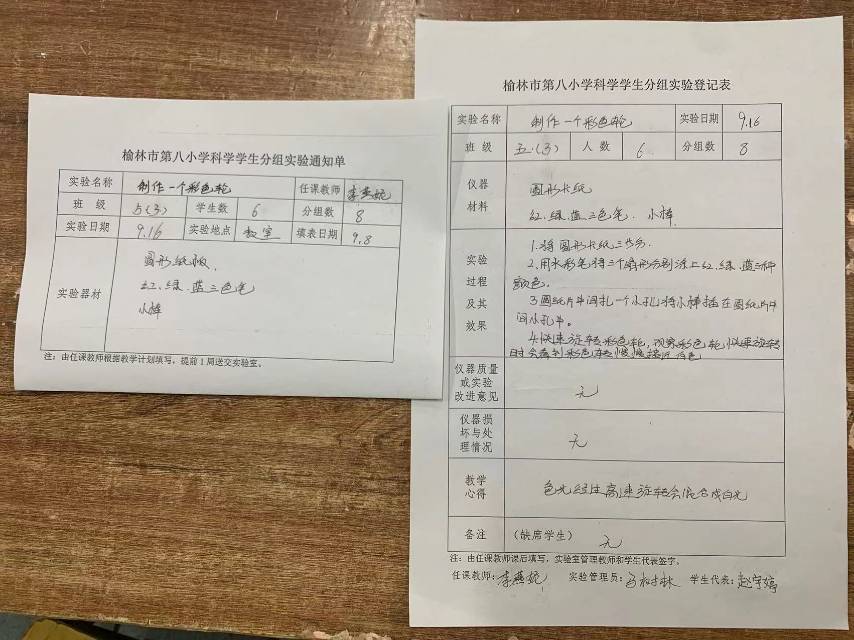 榆林市第八小学科学学生分组实验通知单
实验名称 制作一个彩色轮 任课教师 李燕妮
班 级 5(3) 学生数 6 分组数 8
实验日期 9.16 实验地点 教室 填表日期 9.8
实验器材
圆形纸板、
红、绿、蓝三色笔
小棒
注：由任课教师根据教学计划填写，提前1周送交实验室。
榆林市第八小学科学学生分组实验登记表
实验名称 制作一个彩色轮 实验日期 9.16
班 级 五(3) 人 数 6 分组数 8
仪器
材料
圆形卡纸
红、绿、蓝三色笔、小棒
实验
过程
及其
效果
1.将圆形卡纸三等分.
2.用水彩笔将三个扇形分别涂上红、绿、蓝三种
颜色。
3.圆纸片中间扎一个小孔,将小棒插在圆纸片中
间小孔中。
4.快速旋转彩色轮,观察彩色轮,快速旋转
时会看到彩色轮慢慢接近白色
仪器质量
或实验
改进意见
无
仪器损
坏与处
理情况
无
教学
心得
色光经过高速旋转会混合成白光
备注 （缺席学生） 无
注：由任课教师课后填写，实验室管理教师和学生代表签字。
任课教师：李燕妮 实验管理员： 学生代表：赵宇婷